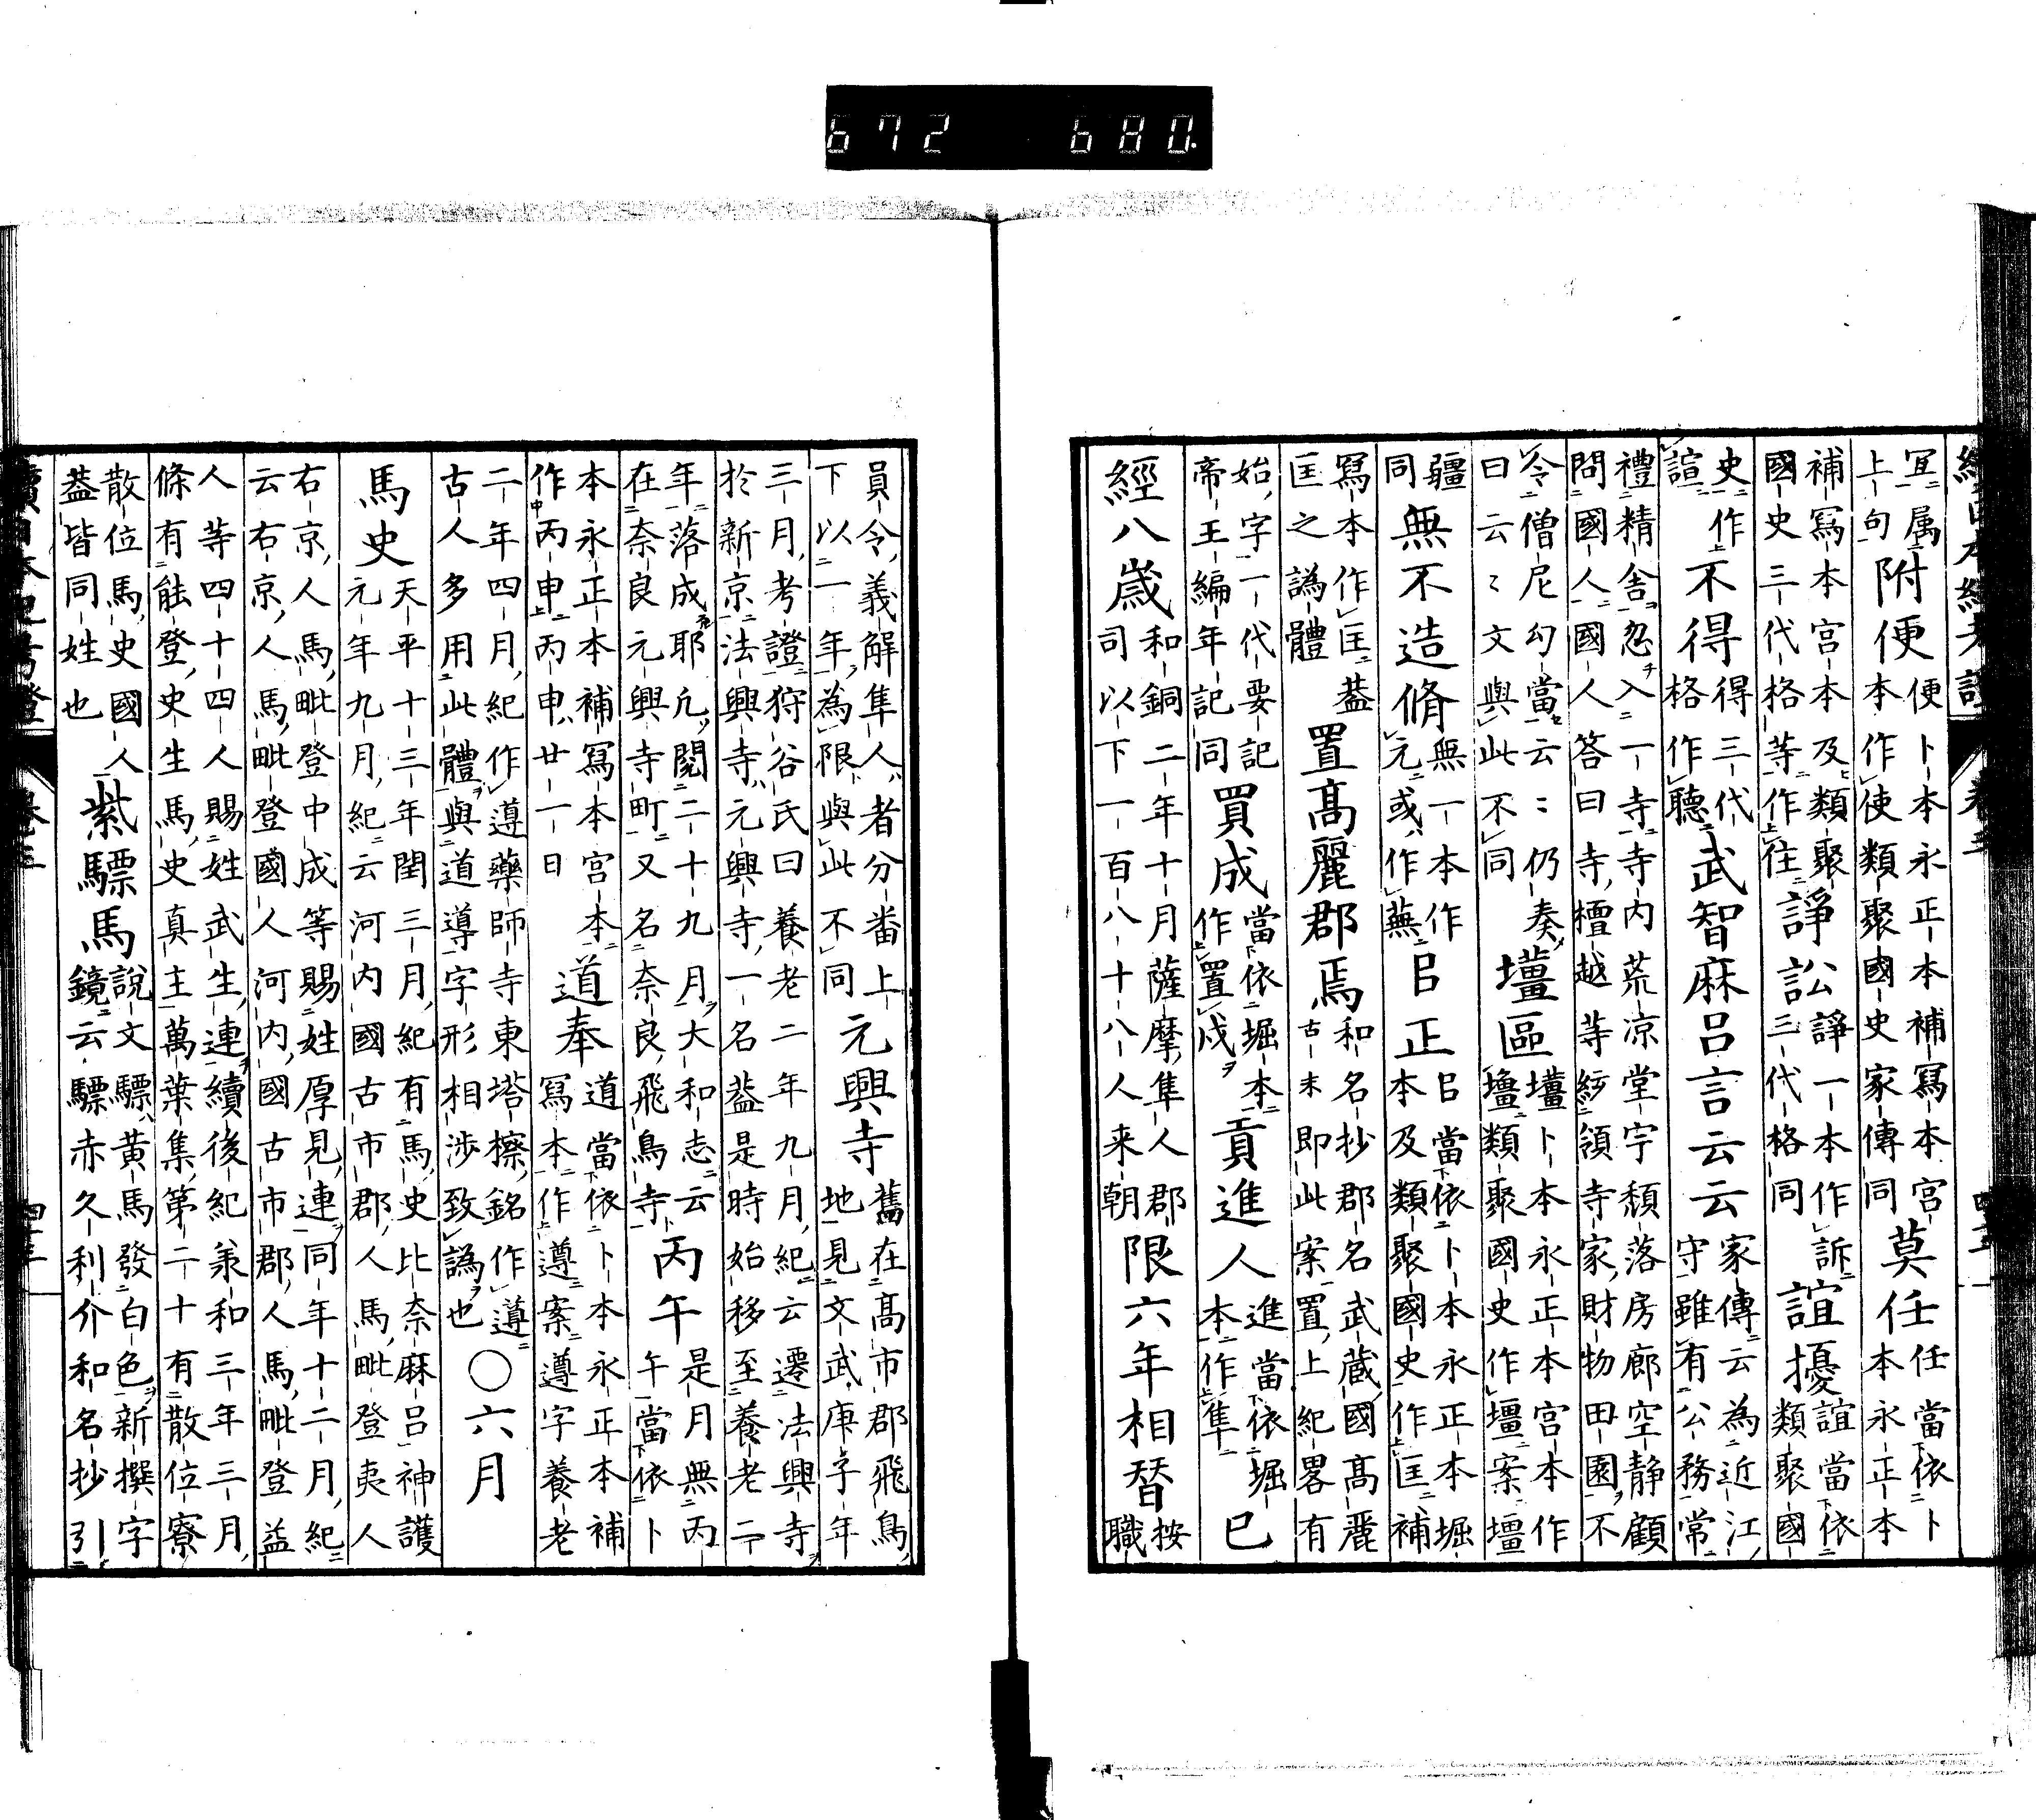 672 680.
冝属
上句附便便卜本永正本補寫本宮
本作使類聚國史家傳同莫任任當依卜
本永正本
補寫本宮本及類聚
國史三代格等作往諍訟諍一本作訴
三代格同誼擾誼當依
類聚國
史作
諠不得得三代
格作聽武智麻呂言云云家傳云為近江
守雖有公務常
禮精舎忽入一寺寺内荒凉堂宇頽落房廊空静顧
問國人國人答曰寺檀越等綂領寺家財物田園不
令僧尼勾當云〻仍奏
曰云〻文與此不同壃區壃卜本永正本宮本作
壇類聚國史作壇案壇
疆
同無不造脩無一本作
元或作蕪㠯正㠯當依卜本永正本堀
本及類聚國史作匡補
寫本作匡葢
匡之譌體置髙麗郡焉和名抄郡名武蔵國髙麗
古末即此案置上紀畧有
始字一代要記
帝王編年記同買成當依堀本
作置戍貢進人進當依堀
本作隼巳
經八歳和銅二年十月薩摩隼人郡
司以下一百八十八人来朝限六年相替按
職
員令義解隼人者分番上
下以一年為限與此不同元興寺舊在髙市郡飛鳥
地見文武庚子年
三月考證狩谷氏曰養老二年九月紀云遷法興寺
於新京法興寺元興寺一名葢是時始移至養老二
年落成耶凢閲二十九月大和志云
在奈良元興寺町又名奈良飛鳥寺丙午是月無丙
午當依卜
本永正本補寫本宮本
作丙申丙申廿一日道奉道當依卜本永正本補
寫本作遵案遵字養老
二年四月紀作遵藥師寺東塔檫銘作遵
古人多用此體與道導字形相渉致譌也〇六月
馬史天平十三年閏三月紀有馬史比奈麻呂神護
元年九月紀云河内國古市郡人馬毗登夷人
右京人馬毗登中成等賜姓厚見連同年十二月紀
云右京人馬毗登國人河内國古市郡人馬毗登益
人等四十四人賜姓武生連續後紀承和三年三月
條有能登史生馬史真主萬葉集第二十有散位寮
散位馬史國人
葢皆同姓也紫驃馬說文驃黄馬發白色新撰字
鏡云驃赤久利介和名抄引